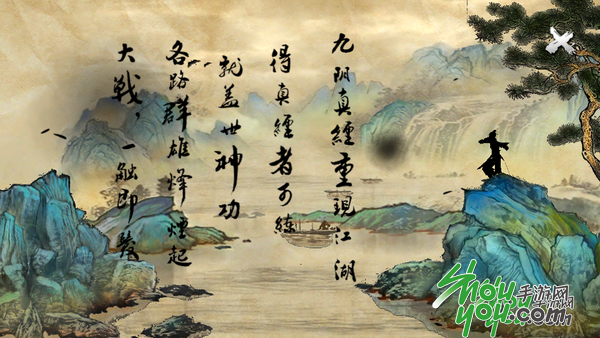 九阴真經重現江湖
得真經者可練
就盖世神功
各路群雄烽煙起
大戰，一触即發
Shou
you
手游网